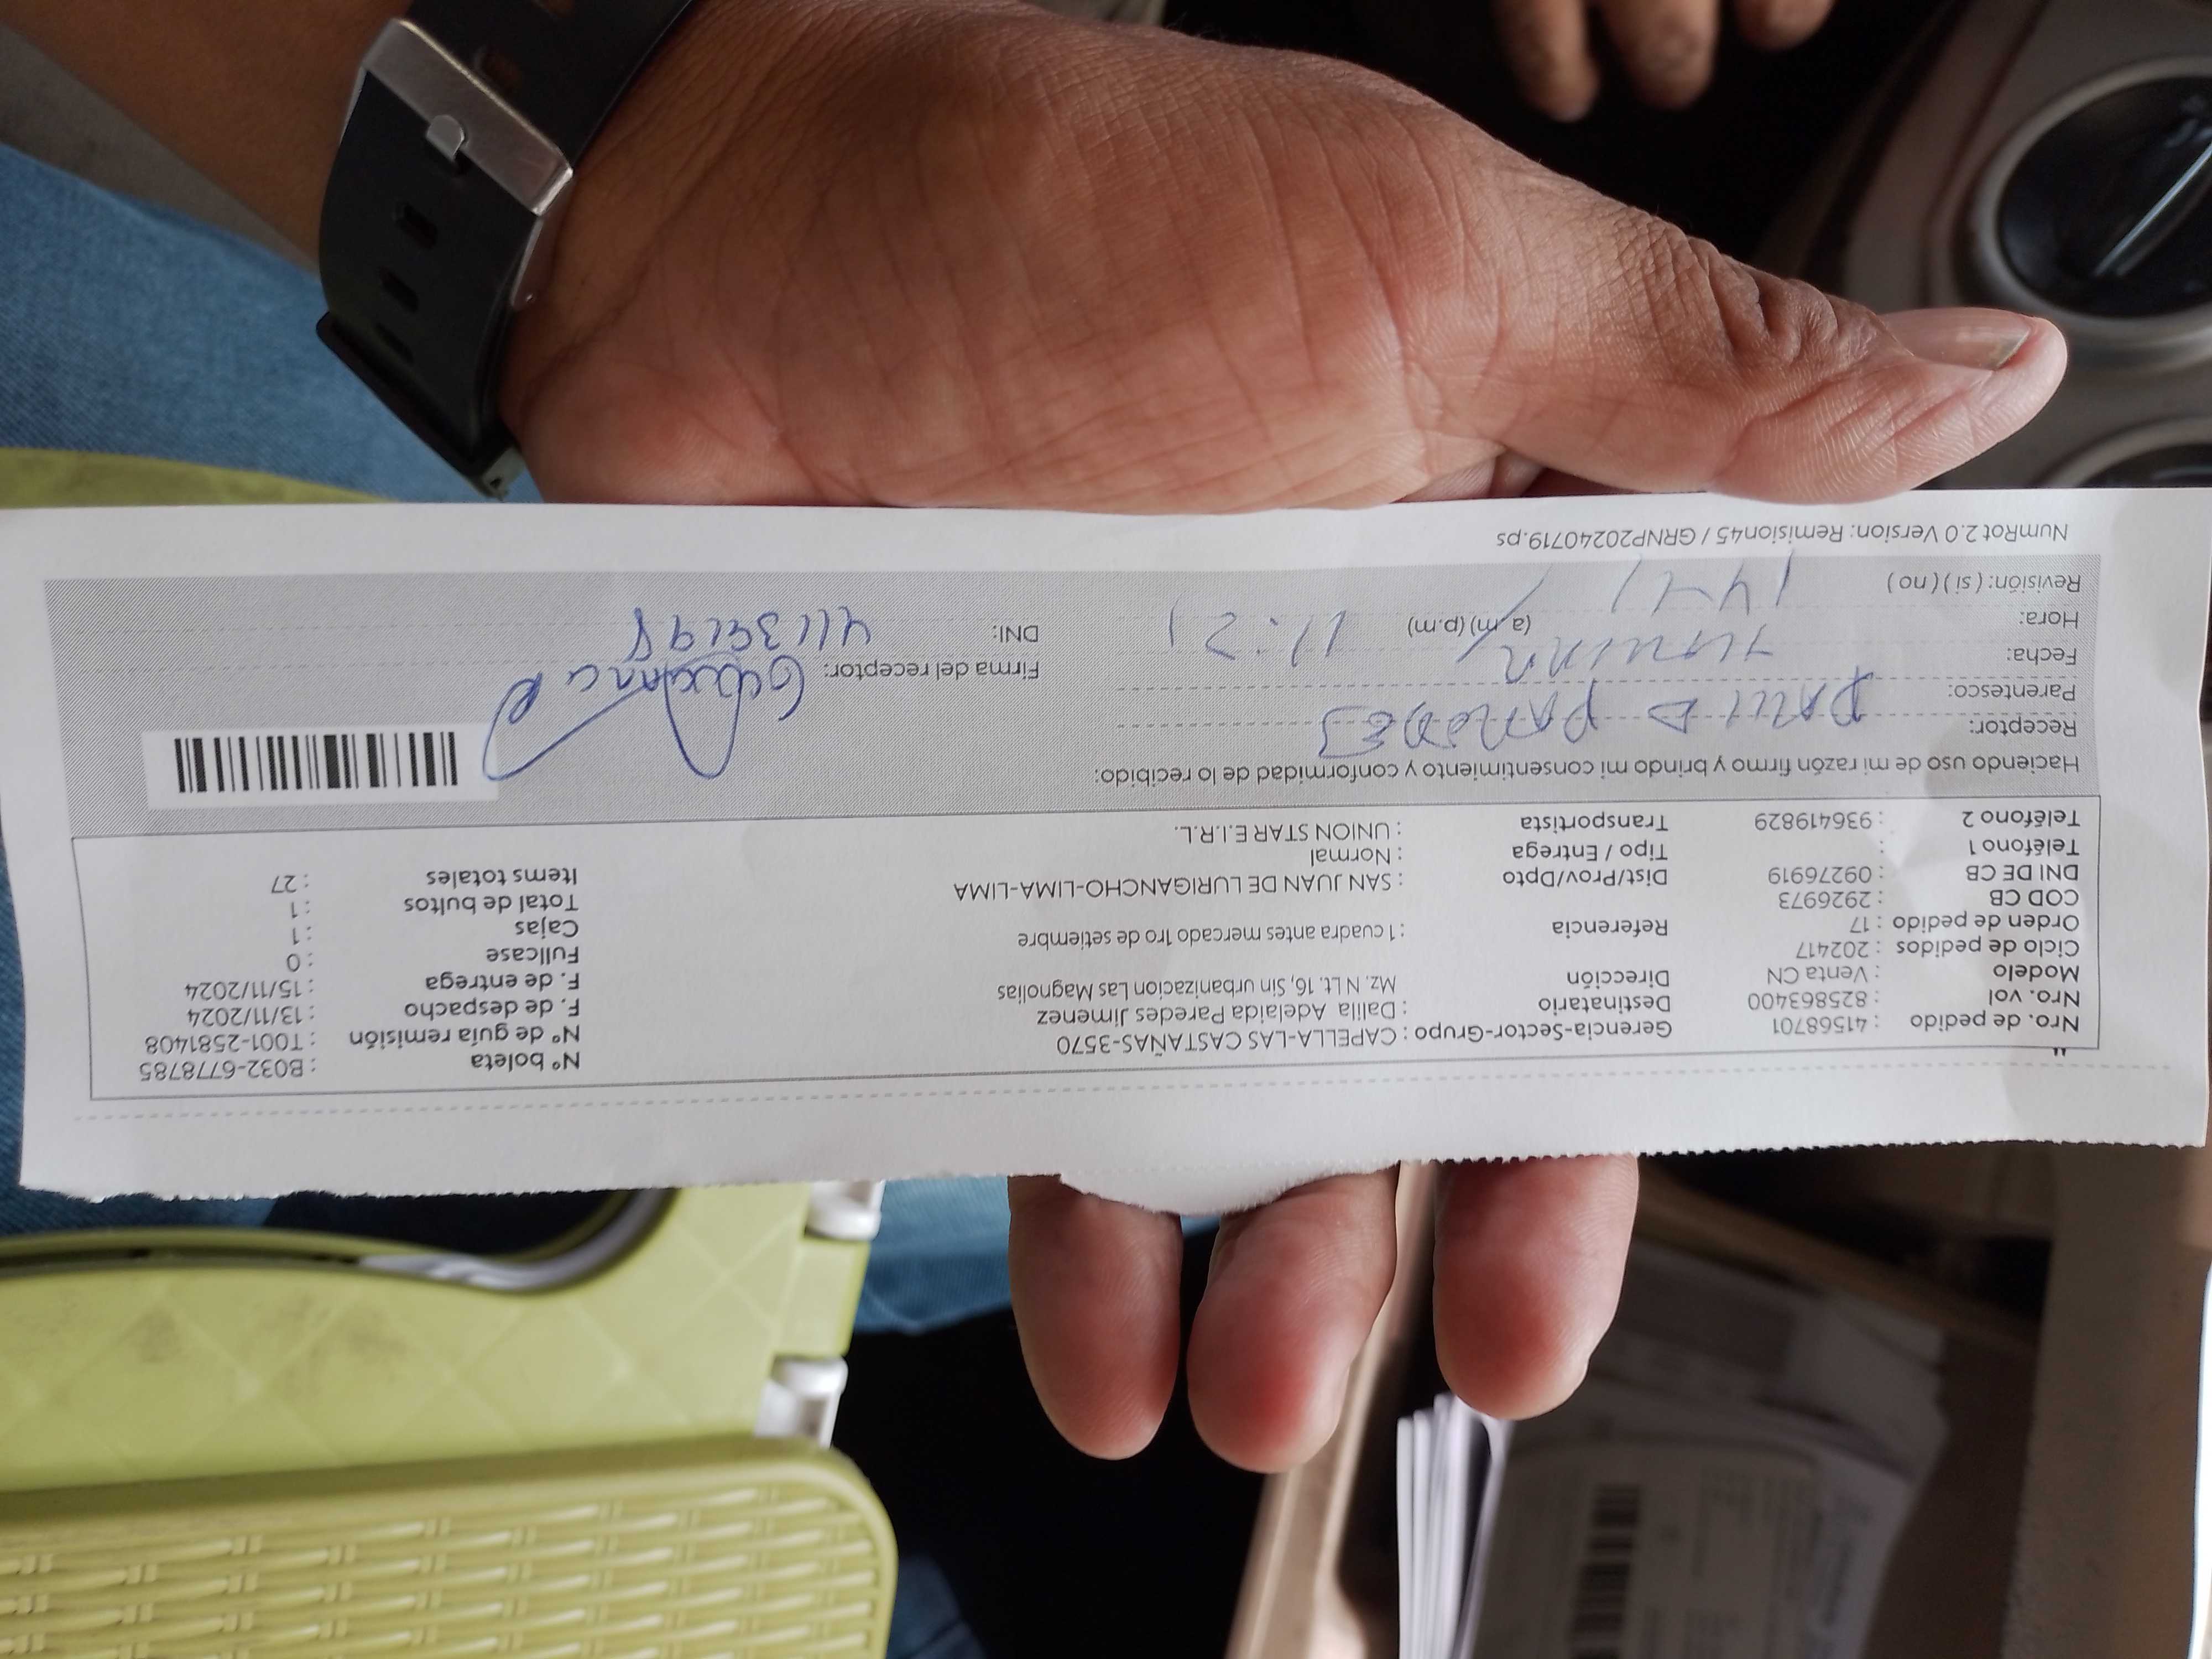 Nro. de pedido : 41568701 Gerencia-Sector-Grupo : CAPELLA-LAS CASTAÑAS-3570 N° boleta : B032-6778785
Nro. vol : 825863400 Destinatario : Dalila Adelaida Paredes Jimenez N° de guía remisión : T001-2581408
Modelo : Venta CN Dirección Mz. N Lt. 16, Sin urbanizacion Las Magnolias F. de despacho : 13/11/2024
Ciclo de pedidos : 202417 F. de entrega : 15/11/2024
Orden de pedido : 17 Referencia : 1 cuadra antes mercado 1ro de setiembre Fullcase : 0
COD CB : 2926973 Cajas : 1
DNI DE CB : 09276919 Dist/Prov/Dpto : SAN JUAN DE LURIGANCHO-LIMA-LIMA Total de bultos : 1
Teléfono 1 : Tipo / Entrega : Normal Items totales : 27
Teléfono 2 : 936419829 Transportista : UNION STAR E.I.R.L.
Haciendo uso de mi razón firmo y brindo mi consentimiento y conformidad de lo recibido:
Receptor: PAREDES
Parentesco:
Fecha: Firma del receptor:
Hora: (a.m) (p.m) 11:21 DNI:
Revisión: ( si ) ( no )
NumRot 2.0 Version: Remision45 / GRNP20240719.ps